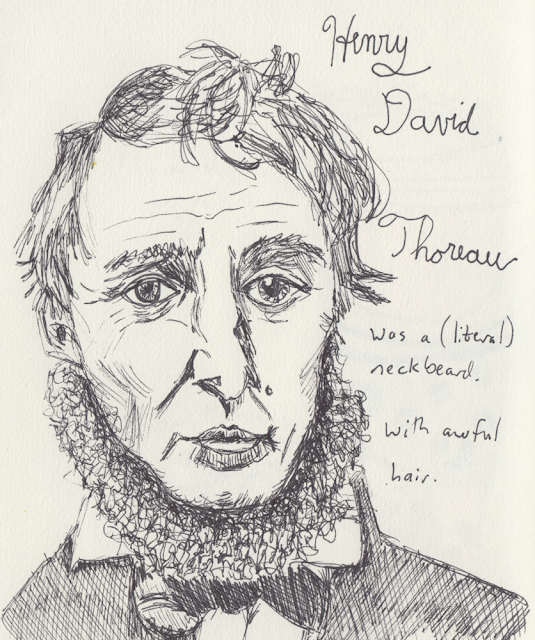 Henry
David
Thoreau
was a (literal)
neckbeard.
with awful
hair.